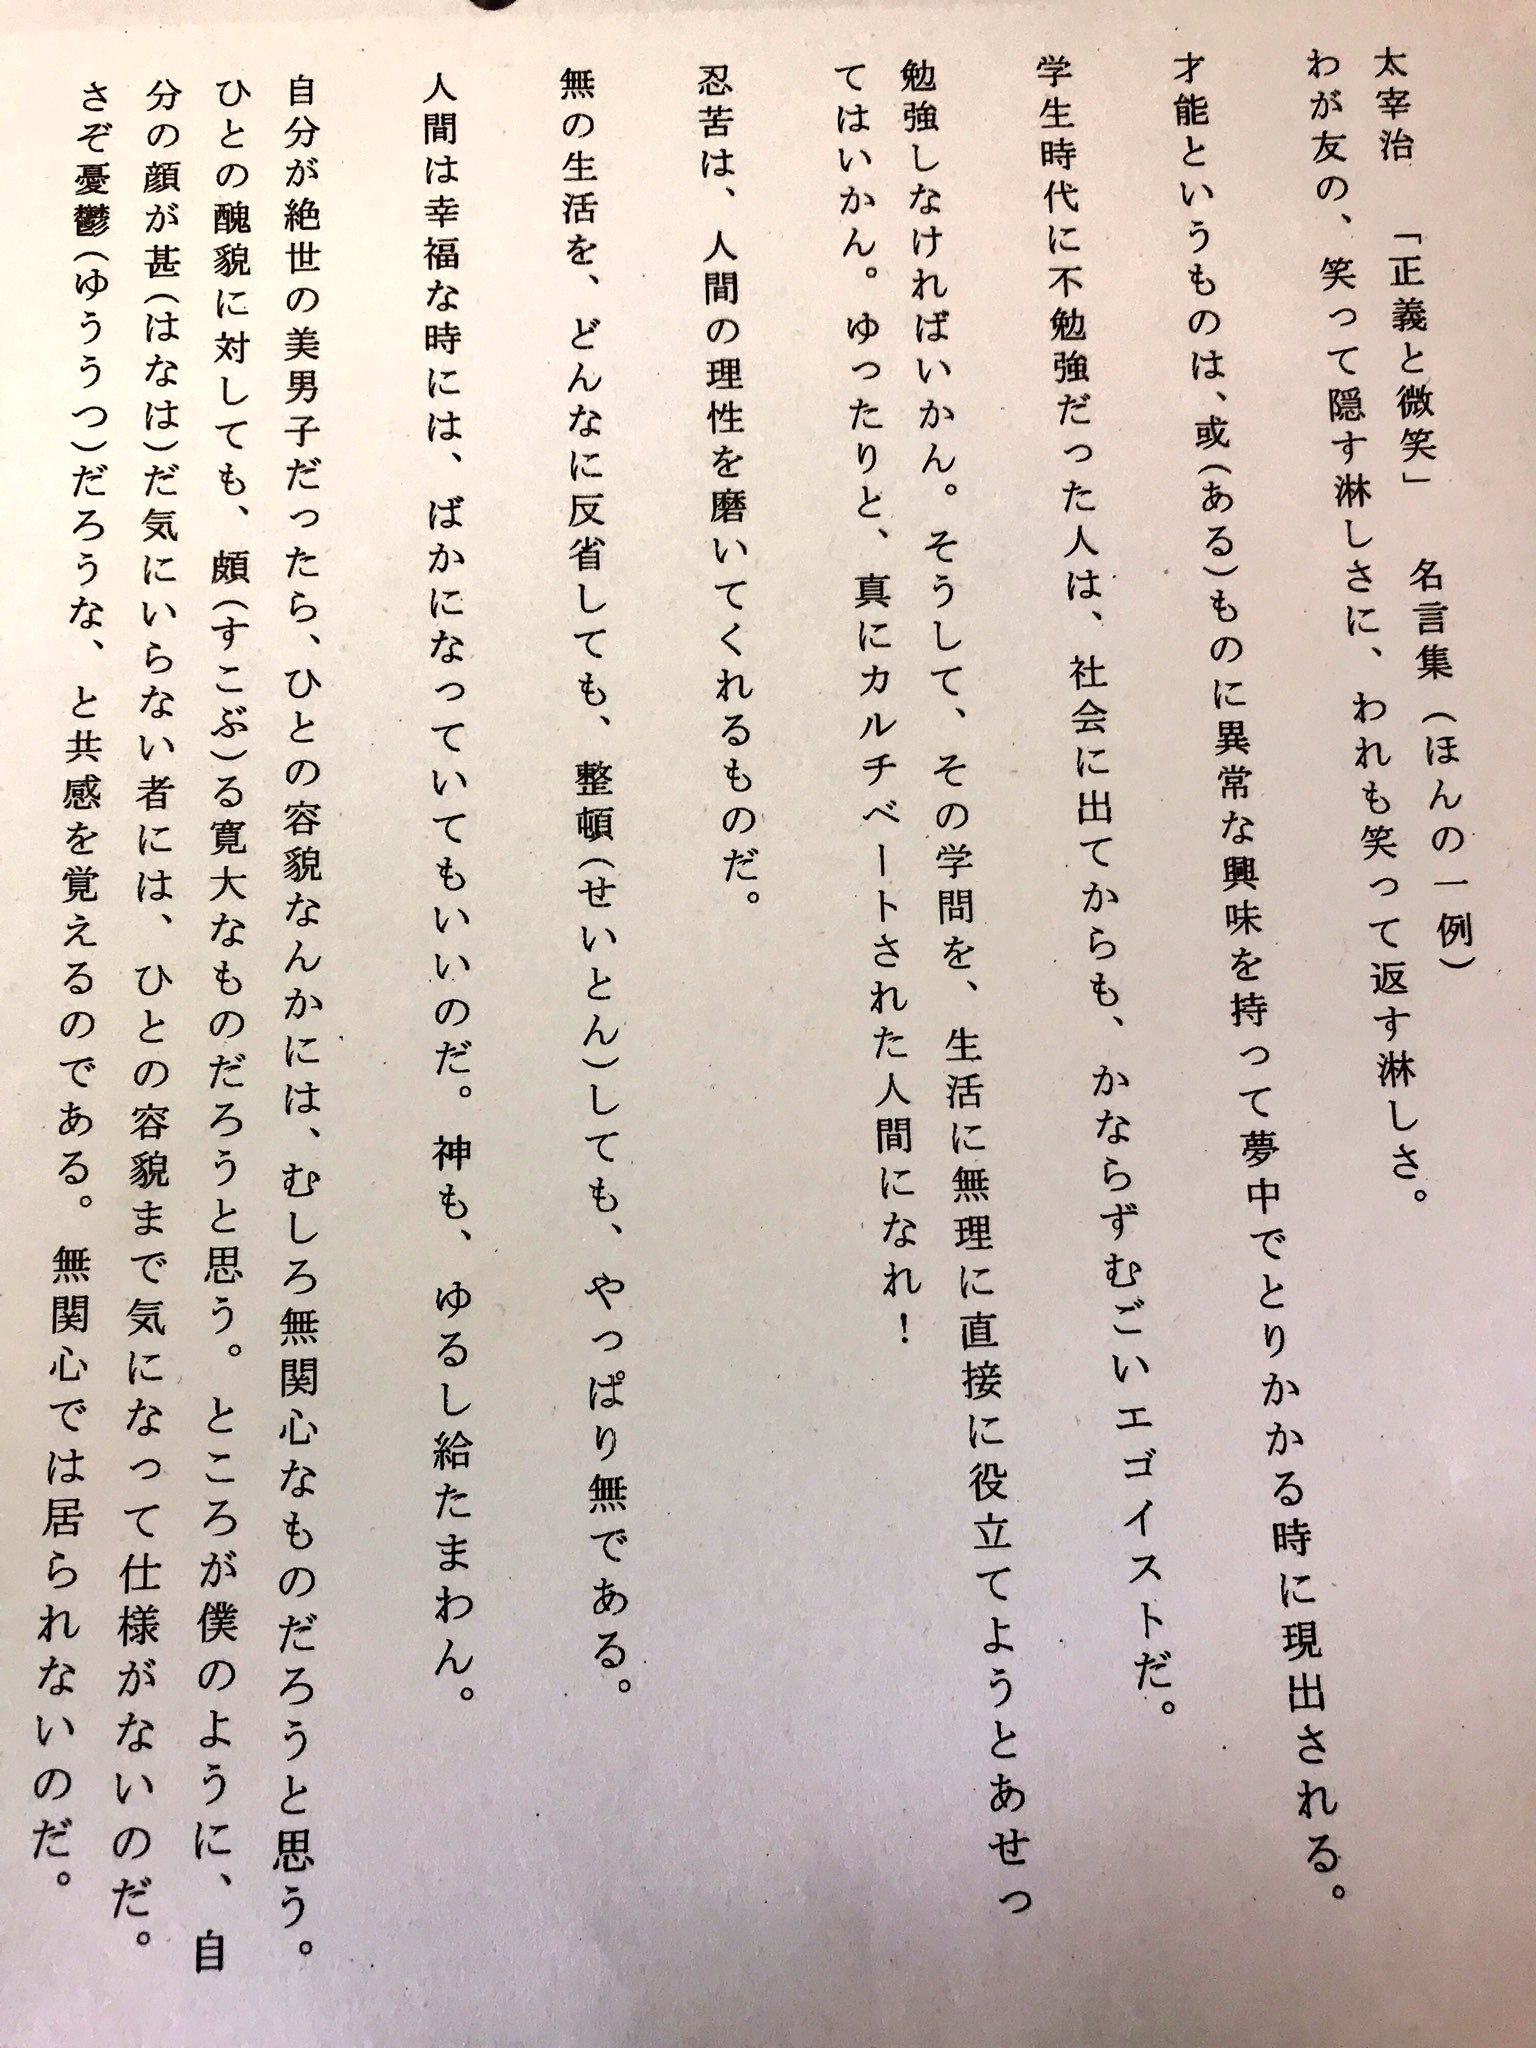 太宰治　「正義と微笑」　名言集（ほんの一例）
わが友の、笑って隠す淋しさに、われも笑って返す淋しさ。
才能というものは、或(ある)ものに異常な興味を持って夢中でとりかかる時に現出される。
学生時代に不勉強だった人は、社会に出てからも、かならずむごいエゴイストだ。
勉強しなければいかん。そうして、その学問を、生活に無理に直接に役立てようとあせっ
てはいかん。ゆったりと、真にカルチベートされた人間になれ！
忍苦は、人間の理性を磨いてくれるものだ。
無の生活を、どんなに反省しても、整頓(せいとん)しても、やっぱり無である。
人間は幸福な時には、ばかになっていてもいいのだ。神も、ゆるし給たまわん。
自分が絶世の美男子だったら、ひとの容貌なんかには、むしろ無関心なものだろうと思う。
ひとの醜貌に対しても、頗(すこぶ)る寛大なものだろうと思う。ところが僕のように、自
分の顔が甚(はなは)だ気にいらない者には、ひとの容貌まで気になって仕様がないのだ。
さぞ憂鬱(ゆううつ)だろうな、と共感を覚えるのである。無関心では居られないのだ。